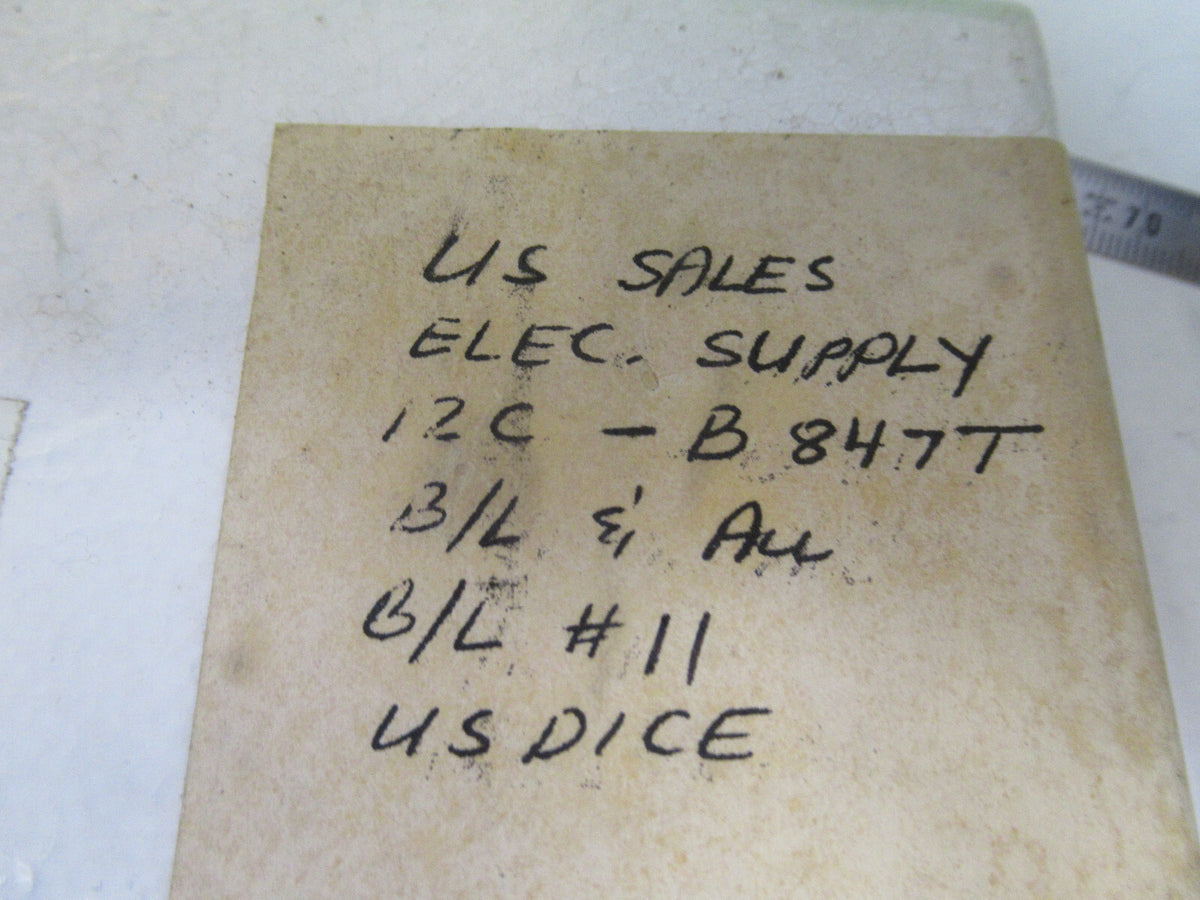 US SALES
ELEC. SUPPLY
12C - B 847T
B/L & ALL
B/L #11
US DICE
70